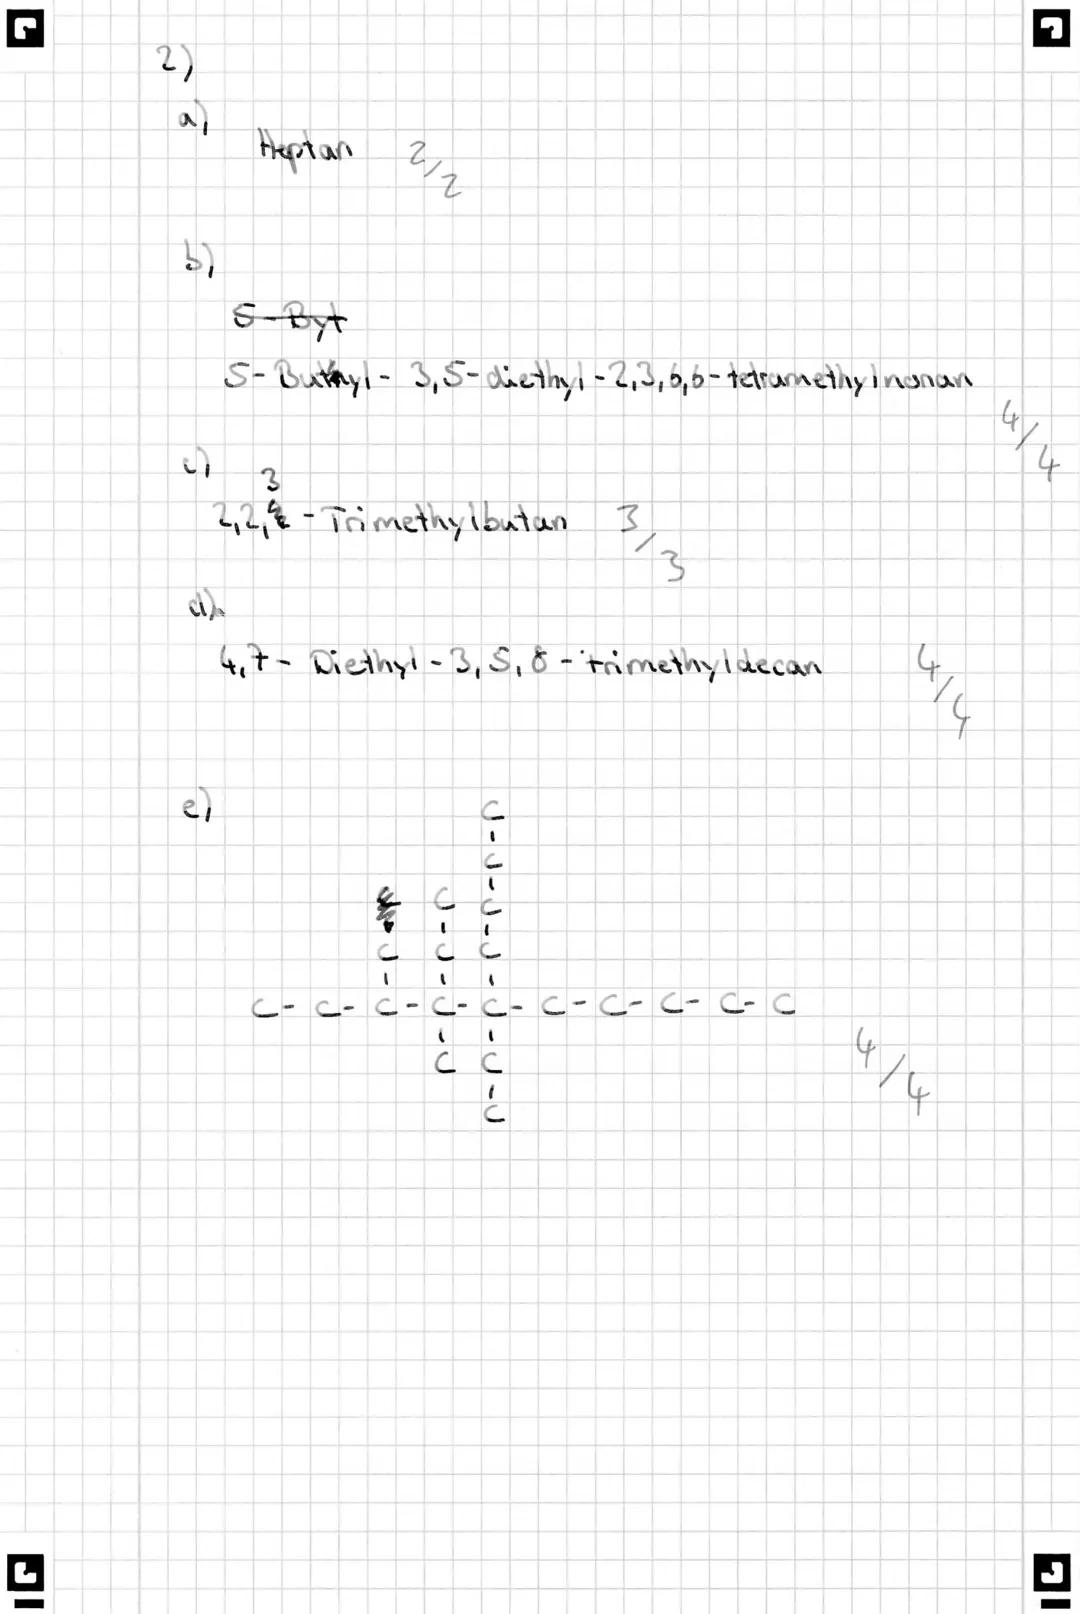 2)
a)
Heptan 2/2
b)
5-Byt
5-Buthyl-3,5-diethyl-2,3,6,6-tetramethylnonan
4/4
c) 3
2,2, -Trimethylbutan 3/3
d)
4,7-Diethyl-3,5,8-trimethyldecan 4/4
e)
C
C
C C
C C C
C-C-C-C-C-C-C-C-C-C
4/4
C C
C